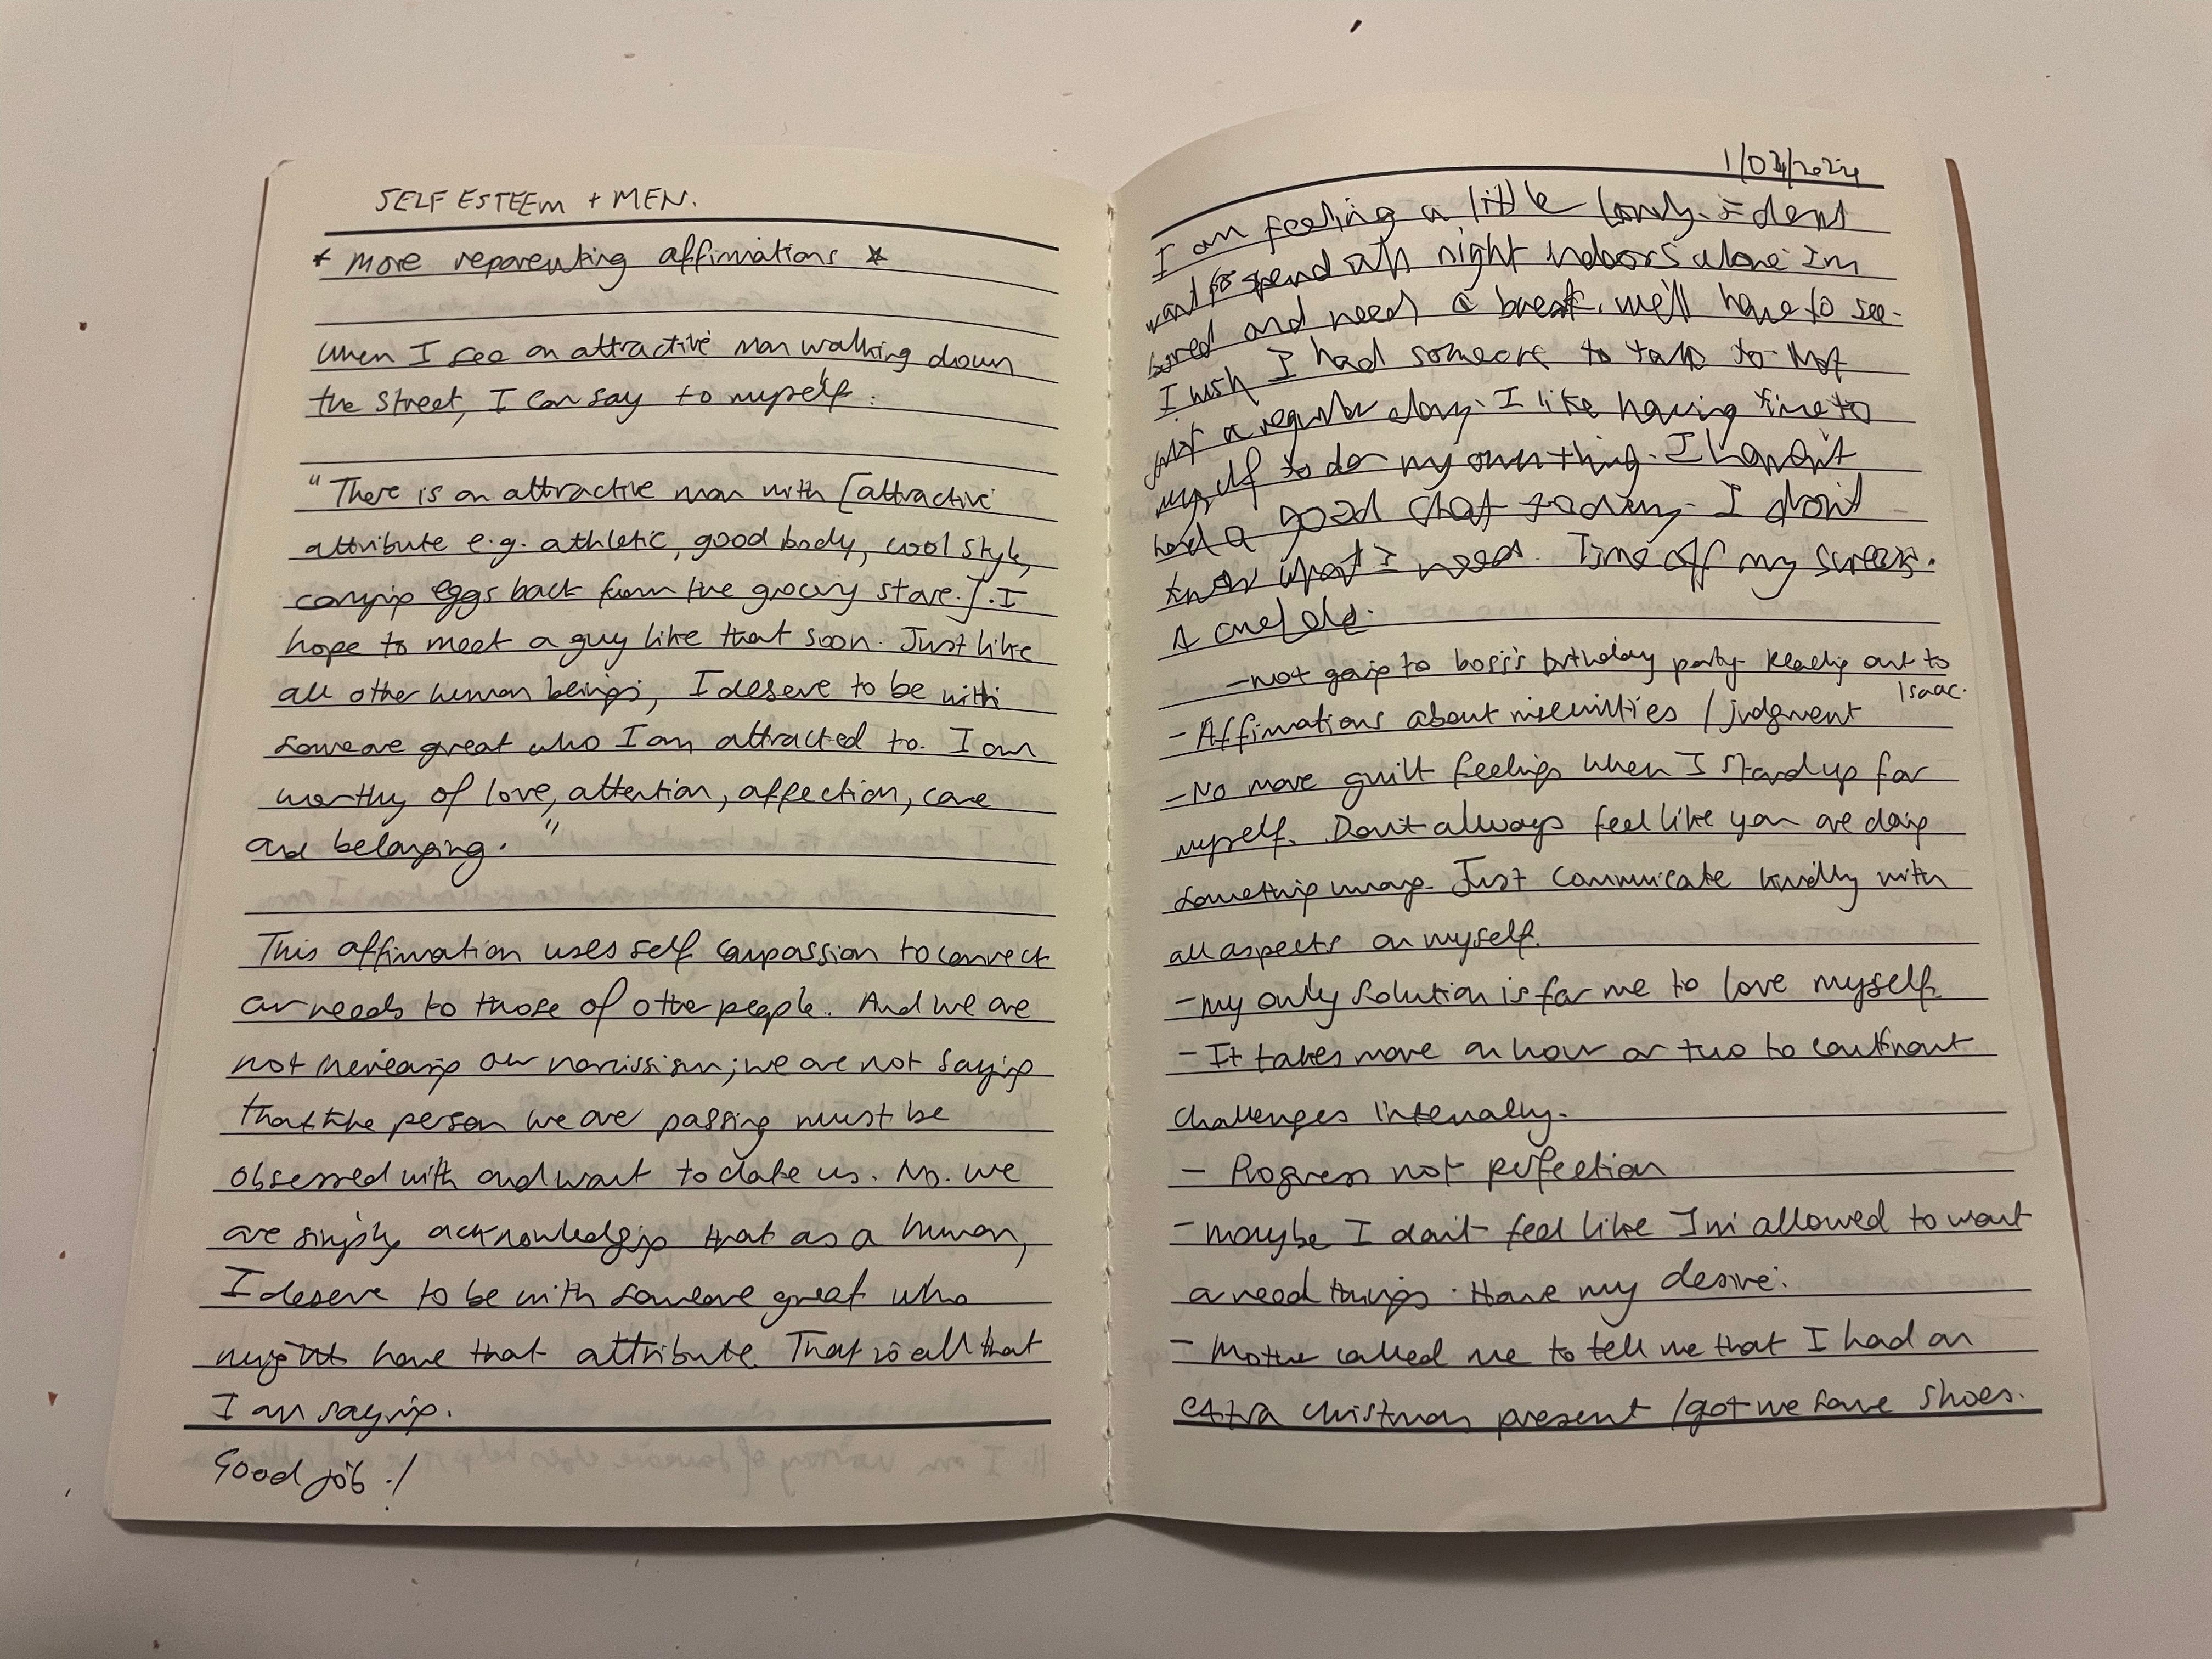 SELF ESTEEM + MEN.
* More reparenting affirmations *
When I see an attractive man walking down
the street, I can say to myself:
"There is an attractive man with [attractive
attribute e.g. athletic, good body, cool style,
carrying eggs back from the grocery store.]. I
hope to meet a guy like that soon. Just like
all other human beings, I deserve to be with
someone great who I am attracted to. I am
worthy of love, attention, affection, care
and belonging."
This affirmation uses self compassion to connect
our needs to those of other people. And we are
not increasing our narcissism; we are not saying
that the person we are passing must be
obsessed with and want to date us. No. We
are simply acknowledging that as a human,
I deserve to be with someone great who
might have that attribute. That is all that
I am saying.
Good job!
I am feeling a little lonely. I dont
want to spend all night indoors alone Im
bored and need a break. we'll have to see.
I wish I had someone to talk to. Not
on a regular day. I like having time to
myself to do my own thing. I haven't
had a good chat today. I don't
know what I need. Time off my screens.
A cuddle.
- not going to boss's birthday party. Reaching out to
Isaac.
- Affirmations about insecurities / judgment
- No more guilt feelings when I stand up for
myself. Don't always feel like you are doing
something wrong. Just communicate kindly with
all aspects on myself.
- my only solution is for me to love myself.
- It takes more an hour or two to confront
challenges internally.
- Progress not perfection
- maybe I don't feel like I'm allowed to want
or need things. Have my desire.
- Mother called me to tell me that I had an
extra christmas present / got me some shoes.